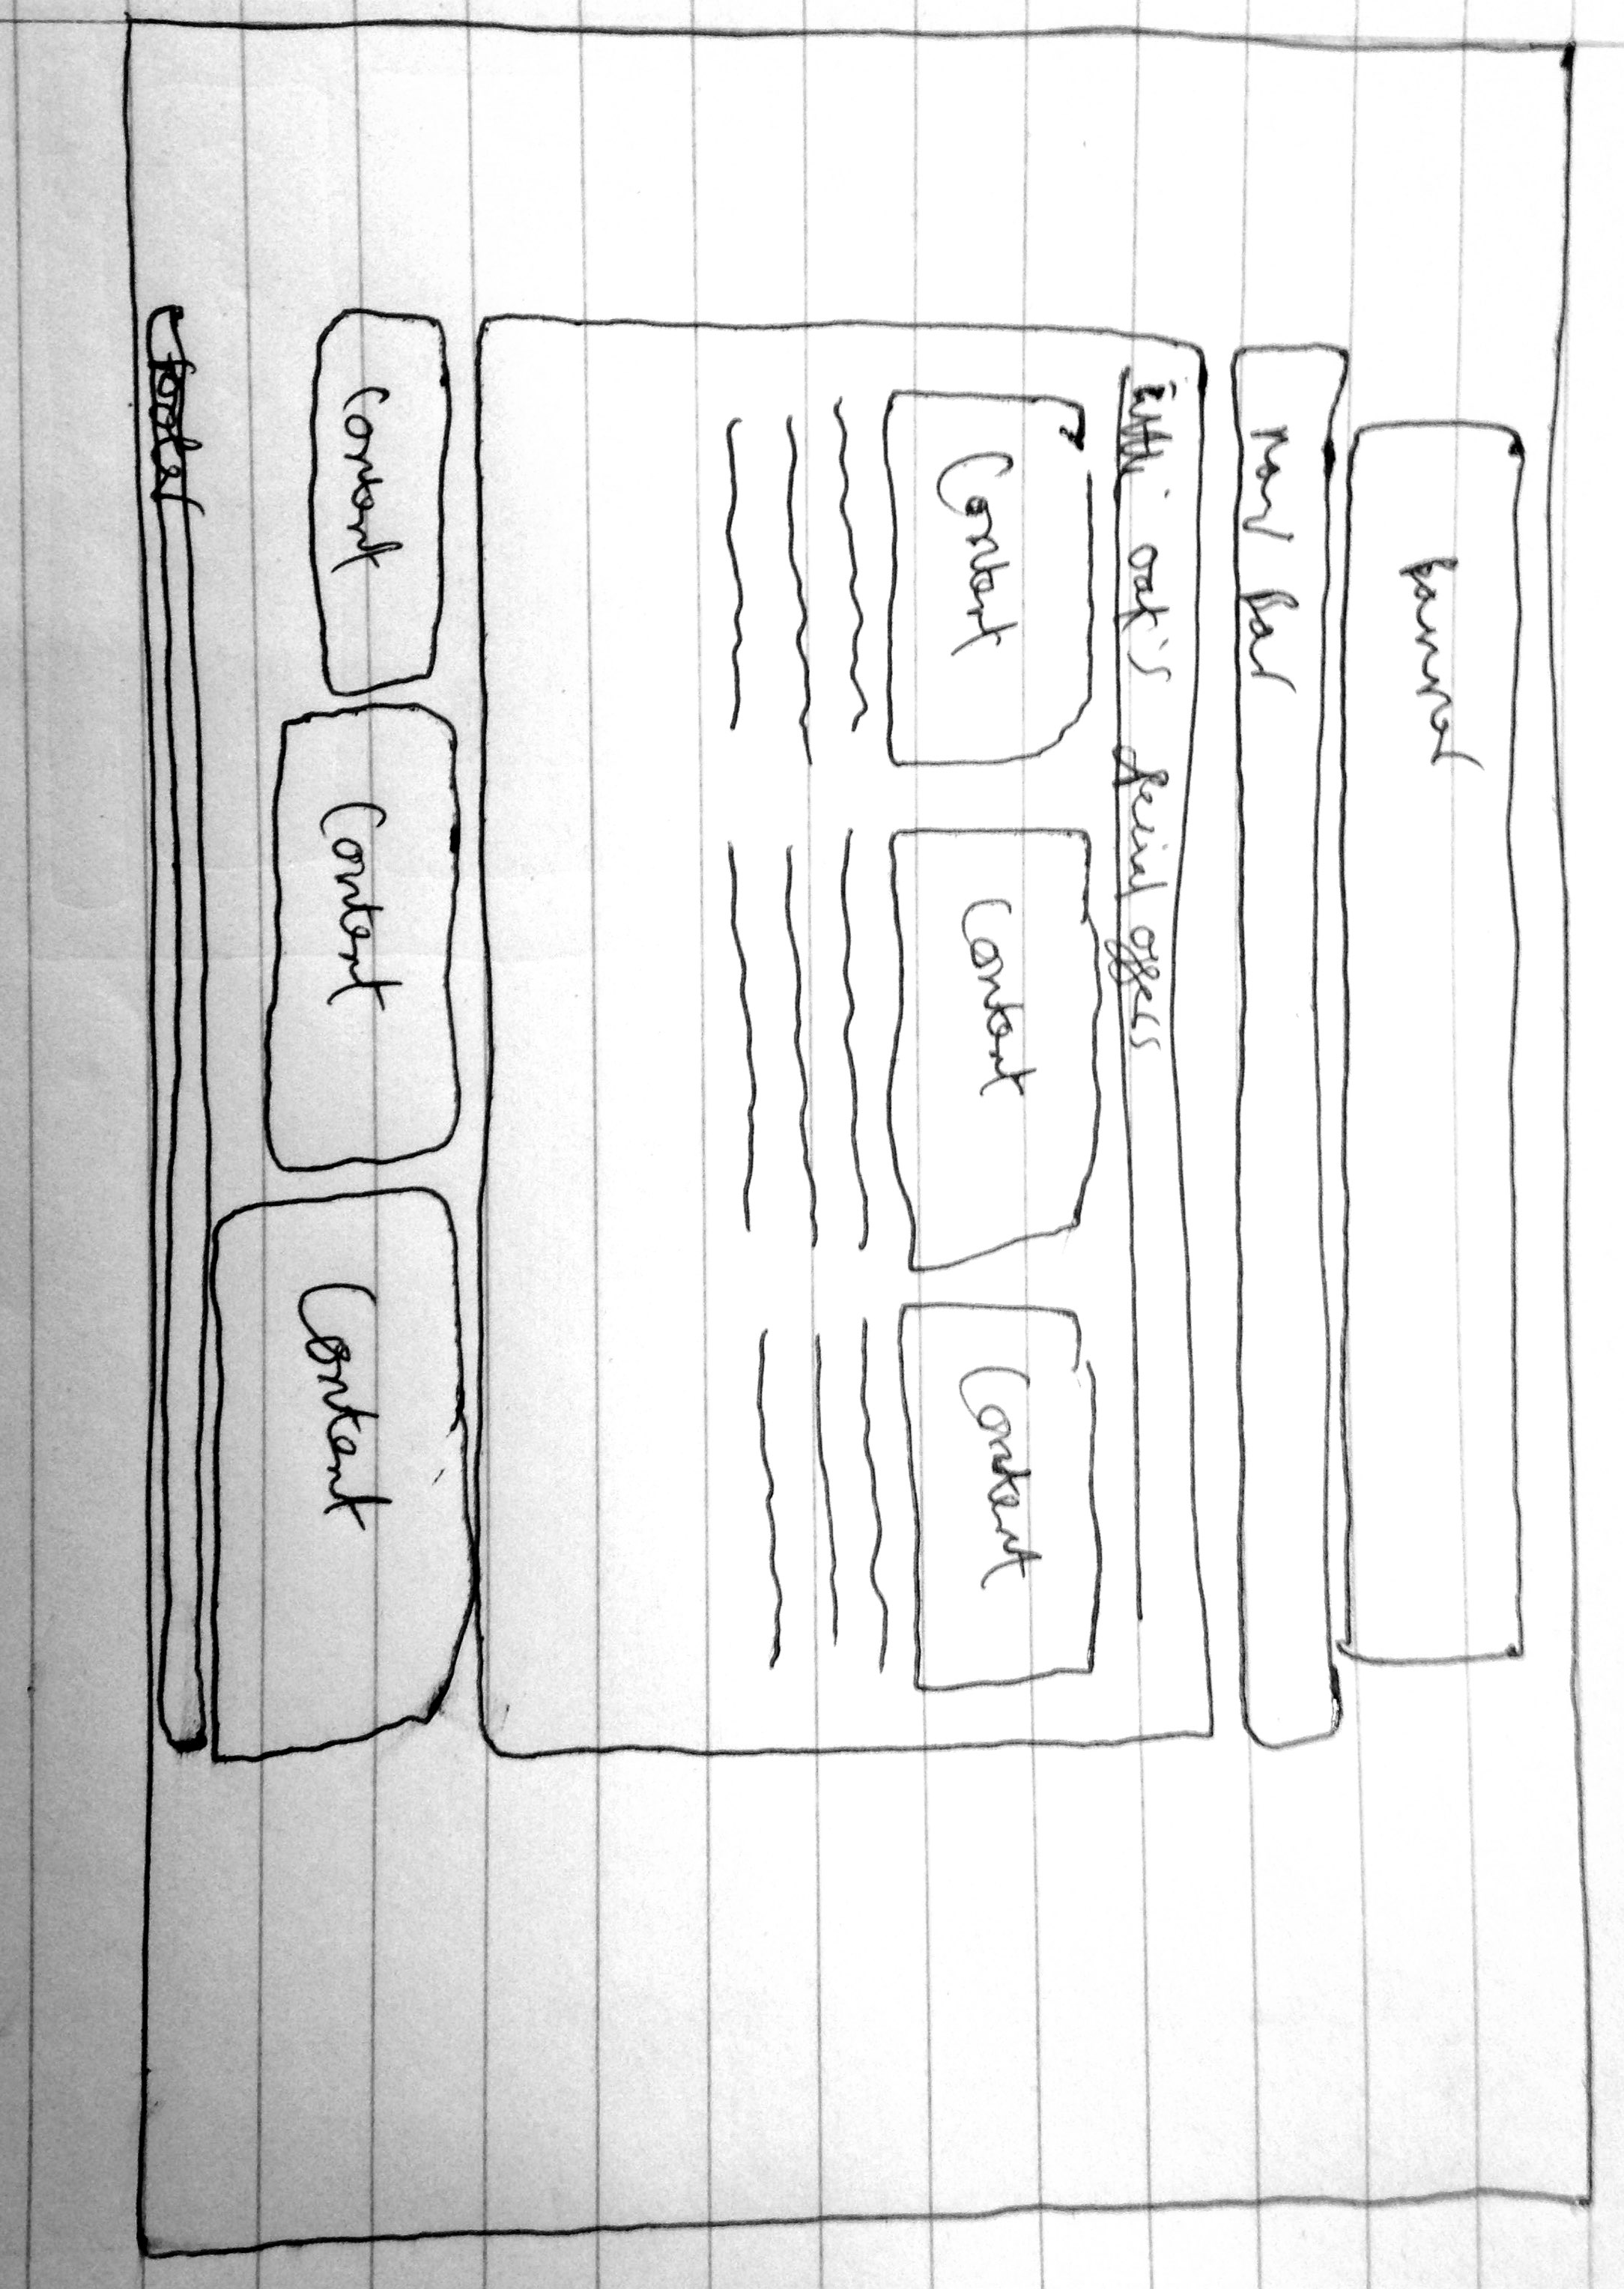 banner
nav bar
oak's special offers
Content Content Content
Content Content Content
footer